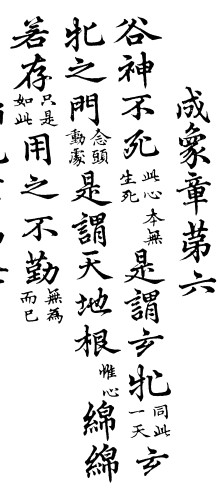 成象章第六
谷神不死此心本無生死是謂玄牝同此一天玄
牝之門念頭動處是謂天地根惟心綿綿
若存只是如此用之不勤無為而已